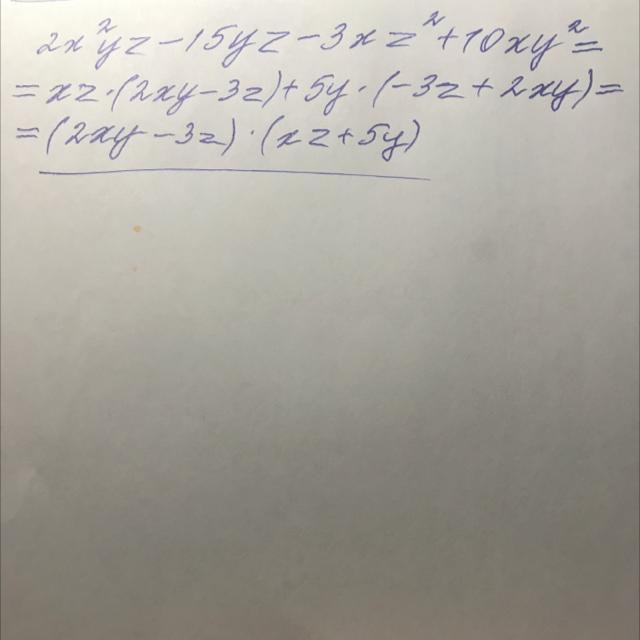 2x²yz-15yz-3xz²+10xy²=
=xz·(2xy-3z)+5y·(-3z+2xy)=
=(2xy-3z)·(xz+5y)